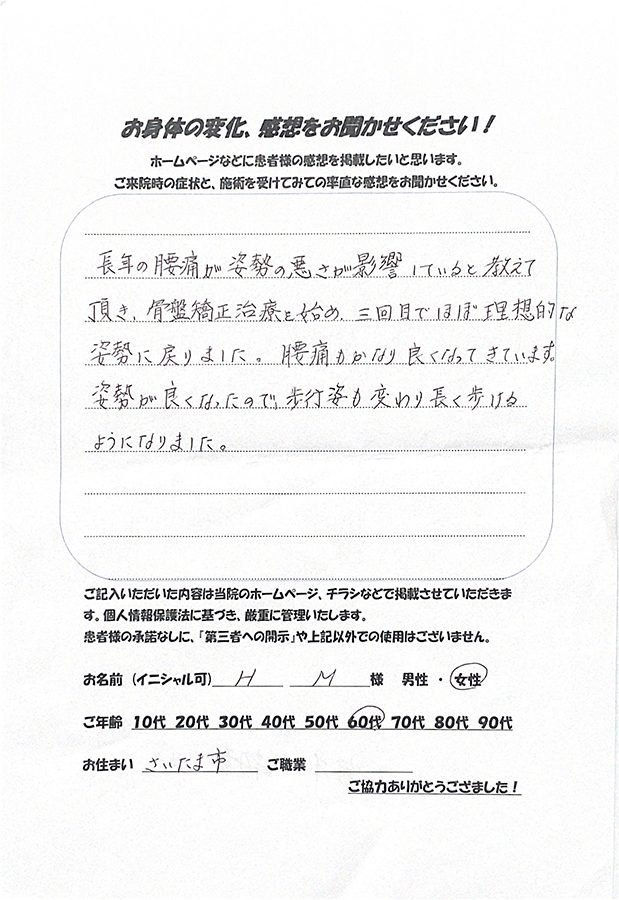 お身体の変化、感想をお聞かせください！
ホームページなどに患者様の感想を掲載したいと思います。
ご来院時の症状と、施術を受けてみての率直な感想をお聞かせください。
長年の腰痛が姿勢の悪さが影響していると教えて
頂き、骨盤矯正治療を始め、三回目でほぼ理想的な
姿勢に戻りました。腰痛もかなり良くなってきています。
姿勢が良くなったので、歩行姿も変わり長く歩ける
ようになりました。
ご記入いただいた内容は当院のホームページ、チラシなどで掲載させていただきま
す。個人情報保護法に基づき、厳重に管理いたします。
患者様の承諾なしに、「第三者への開示」や上記以外での使用はございません。
お名前（イニシャル可） H M 様 男性・女性
ご年齢 10代 20代 30代 40代 50代 60代 70代 80代 90代
お住まい さいたま市 ご職業
ご協力ありがとうございました！